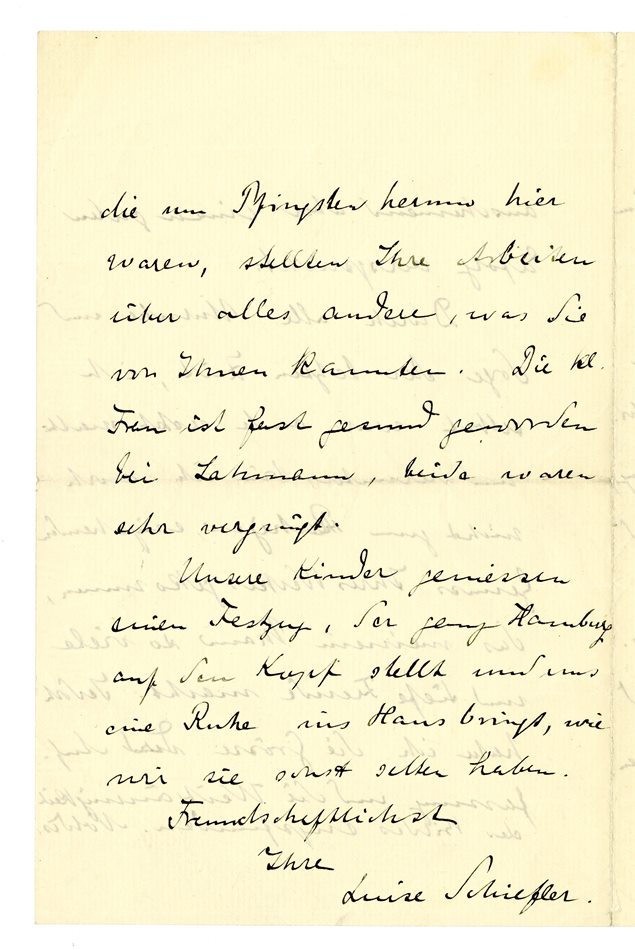 die um Pfingsten herum hier
waren, stellten Ihre Arbeiten
über alles andere, was Sie
von Ihnen kannten. Die kl.
Frau ist fast gesund geworden
bei Lahmann, beide waren
sehr vergnügt.
Unsere Kinder geniessen
einen Festzug, der ganz Hamburg
auf den Kopf stellt und uns
eine Ruhe ins Haus bringt, wie
wir sie sonst selten haben.
Freundschaftlichst
Ihre
Luise Schiefler.